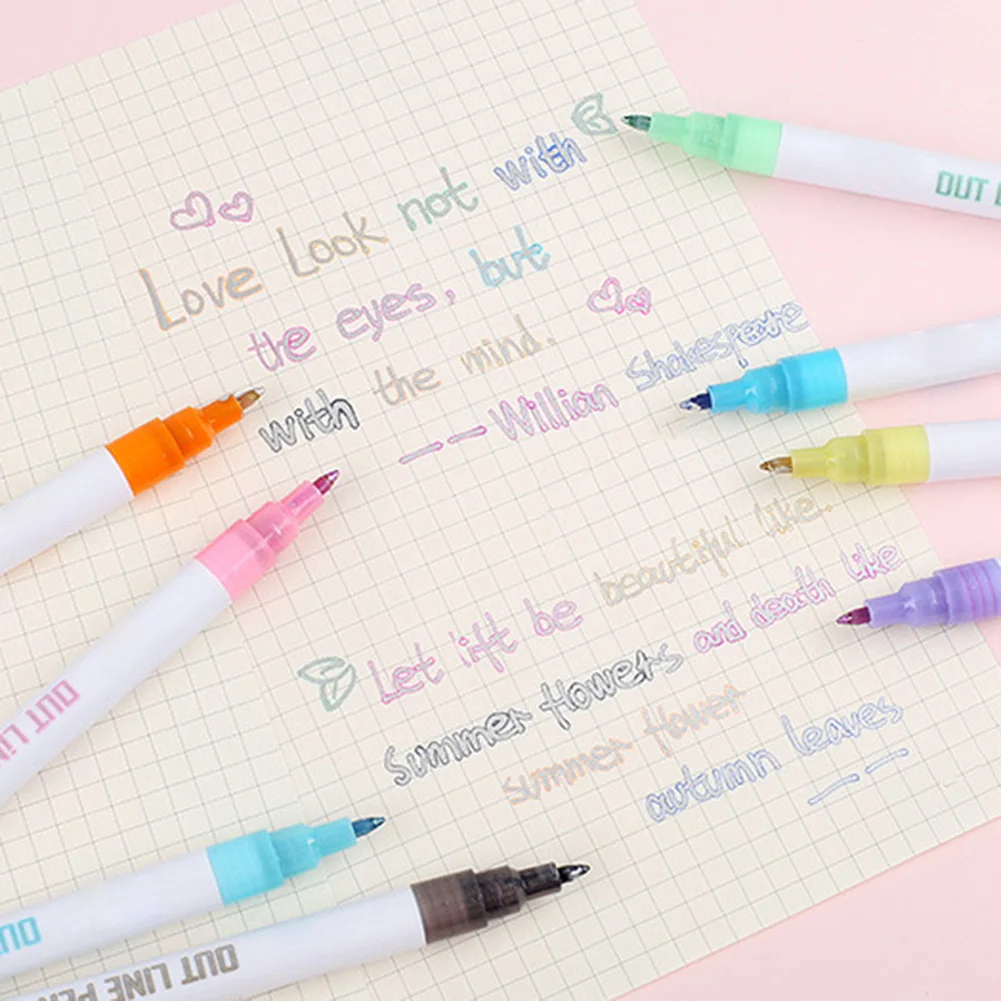 Love Look not with
the eyes, but
with the mind.
—— Willian Shakespeare
Let lift be beautiful like.
summer flowers and death like
summer flower
autumn leaves ——
OUT L
OUT LIN
OU
OUT LINE PEN